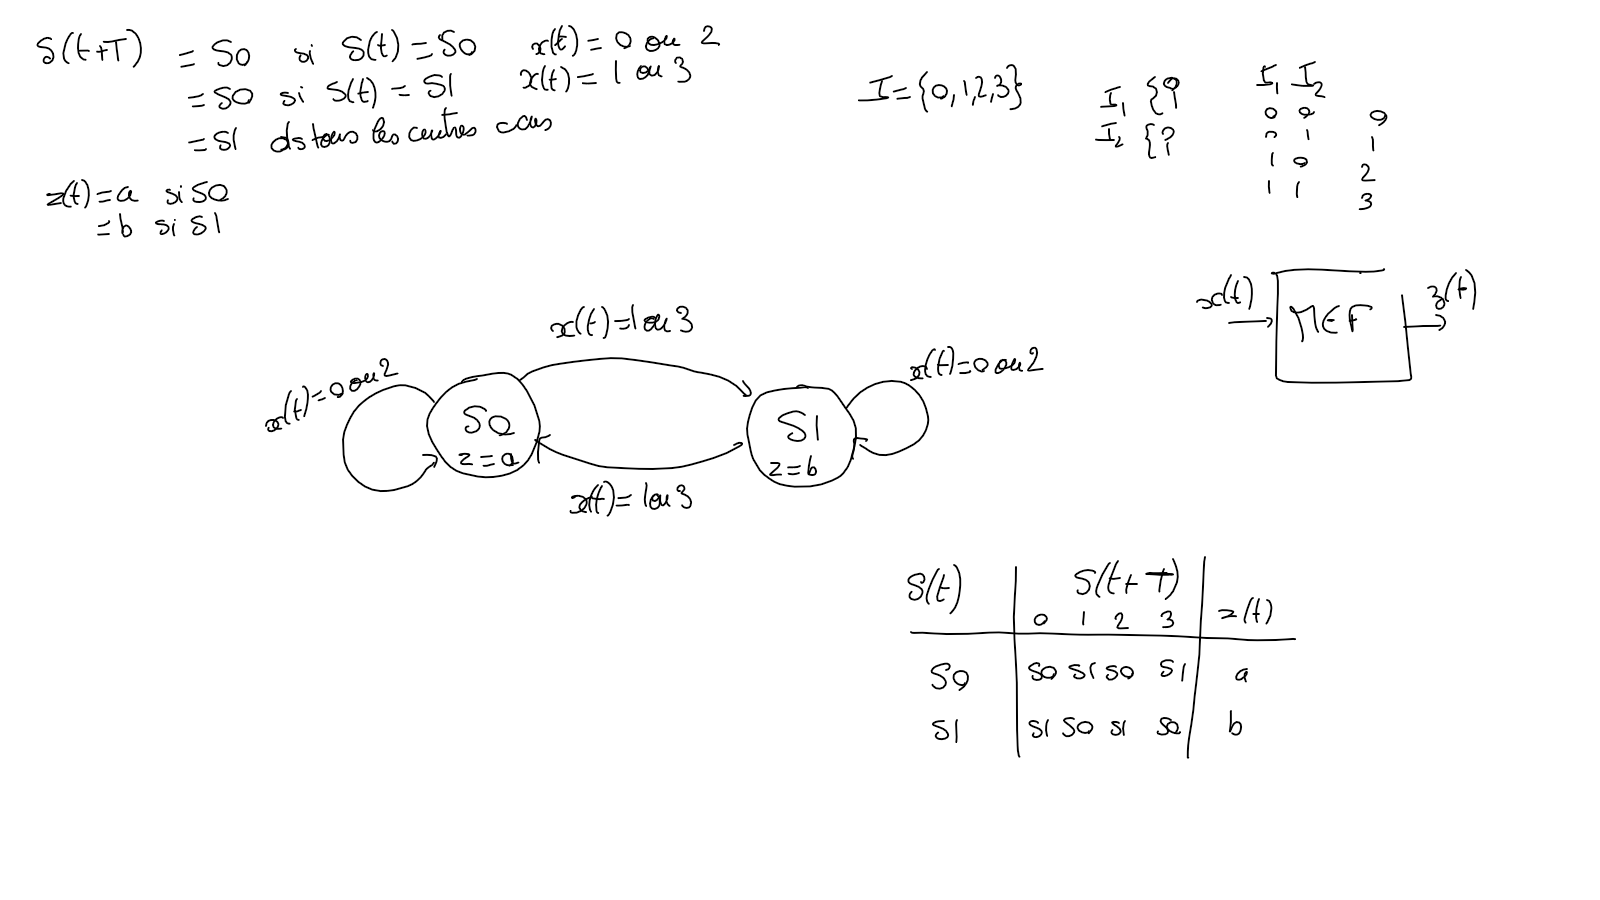 S(t+T) = S0 si S(t) = S0 x(t) = 0 ou 2
= S0 si S(t) = S1 x(t) = 1 ou 3
= S1 ds tous les autres cas
z(t) = a si S0
= b si S1
I = {0,1,2,3}
I1 {?
I2 {?
I1 I2
0 0 0
0 1 1
1 0 2
1 1 3
x(t) MEF z(t)
x(t) = 1 ou 3
x(t) = 0 ou 2
x(t) = 0 ou 2
S0
z = a
S1
z = b
x(t) = 1 ou 3
S(t) S(t+T) z(t)
0 1 2 3
S0 S0 S1 S0 S1 a
S1 S1 S0 S1 S0 b